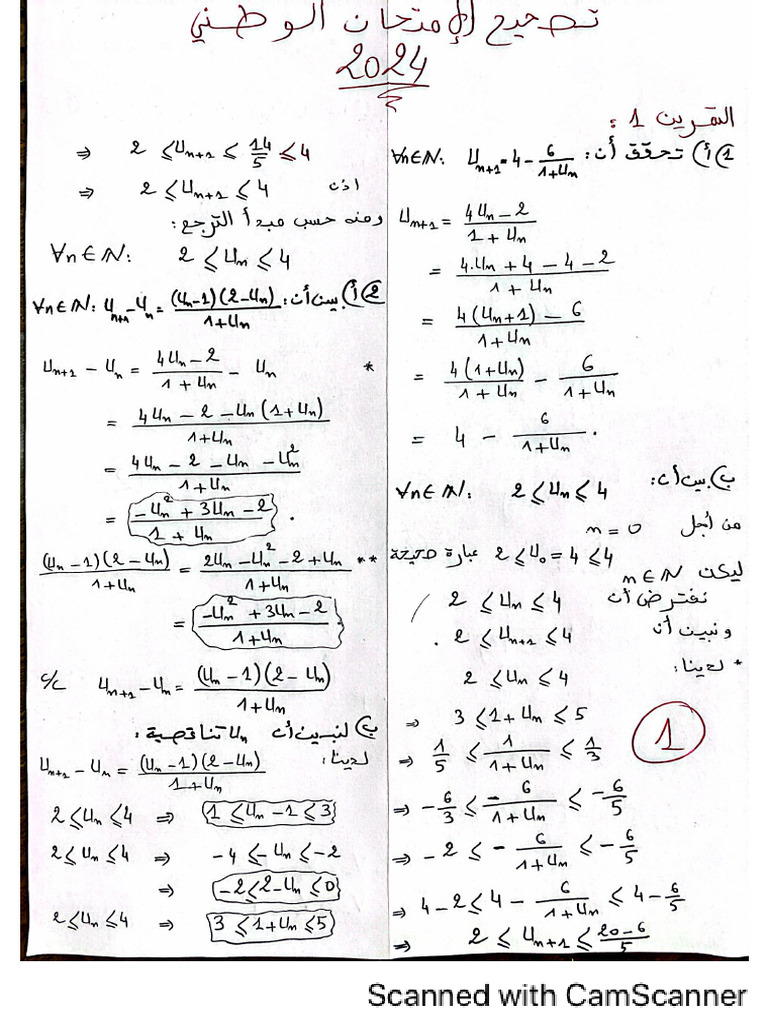 تصحيح الإمتحان الوطني
2024
التمرين 1 :
1) أ) تحقق أن: ∀n∈ℕ: U_{n+1} = 4 - 6/(1+U_n)
U_{n+1} = (4U_n - 2)/(1 + U_n)
= (4.U_n + 4 - 4 - 2)/(1 + U_n)
= (4(U_n+1) - 6)/(1+U_n)
= 4(1+U_n)/(1+U_n) - 6/(1+U_n)
= 4 - 6/(1+U_n).
ب) بين أن: ∀n∈ℕ: 2 ≤ U_n ≤ 4
من أجل n = 0
2 ≤ U_0 = 4 ≤ 4 عبارة صحيحة
ليكن n∈ℕ
نفترض أن 2 ≤ U_n ≤ 4
و نبين أن 2 ≤ U_{n+1} ≤ 4.
* لدينا: 2 ≤ U_n ≤ 4
⇒ 3 ≤ 1+U_n ≤ 5
⇒ 1/5 ≤ 1/(1+U_n) ≤ 1/3
⇒ -6/3 ≤ -6/(1+U_n) ≤ -6/5
⇒ -2 ≤ -6/(1+U_n) ≤ -6/5
⇒ 4-2 ≤ 4 - 6/(1+U_n) ≤ 4 - 6/5
⇒ 2 ≤ U_{n+1} ≤ (20-6)/5
1
⇒ 2 ≤ U_{n+1} ≤ 14/5 ≤ 4
اذن ⇒ 2 ≤ U_{n+1} ≤ 4
ومنه حسب مبدأ الترجع:
∀n∈ℕ: 2 ≤ U_n ≤ 4
2) أ) بين أن: ∀n∈ℕ: U_{n+1} - U_n = (U_n-1)(2-U_n)/(1+U_n)
* U_{n+1} - U_n = (4U_n - 2)/(1+U_n) - U_n
= (4U_n - 2 - U_n(1+U_n))/(1+U_n)
= (4U_n - 2 - U_n - U_n²)/(1+U_n)
= (-U_n² + 3U_n - 2)/(1+U_n).
** (U_n-1)(2-U_n)/(1+U_n) = (2U_n - U_n² - 2 + U_n)/(1+U_n)
= (-U_n² + 3U_n - 2)/(1+U_n)
c/c U_{n+1} - U_n = (U_n-1)(2-U_n)/(1+U_n)
ب) لنبين أن U_n تناقصية :
لدينا: U_{n+1} - U_n = (U_n-1)(2-U_n)/(1+U_n)
2 ≤ U_n ≤ 4 ⇒ 1 ≤ U_n - 1 ≤ 3
2 ≤ U_n ≤ 4 ⇒ -4 ≤ -U_n ≤ -2
⇒ -2 ≤ 2-U_n ≤ 0
2 ≤ U_n ≤ 4 ⇒ 3 ≤ 1+U_n ≤ 5
Scanned with CamScanner